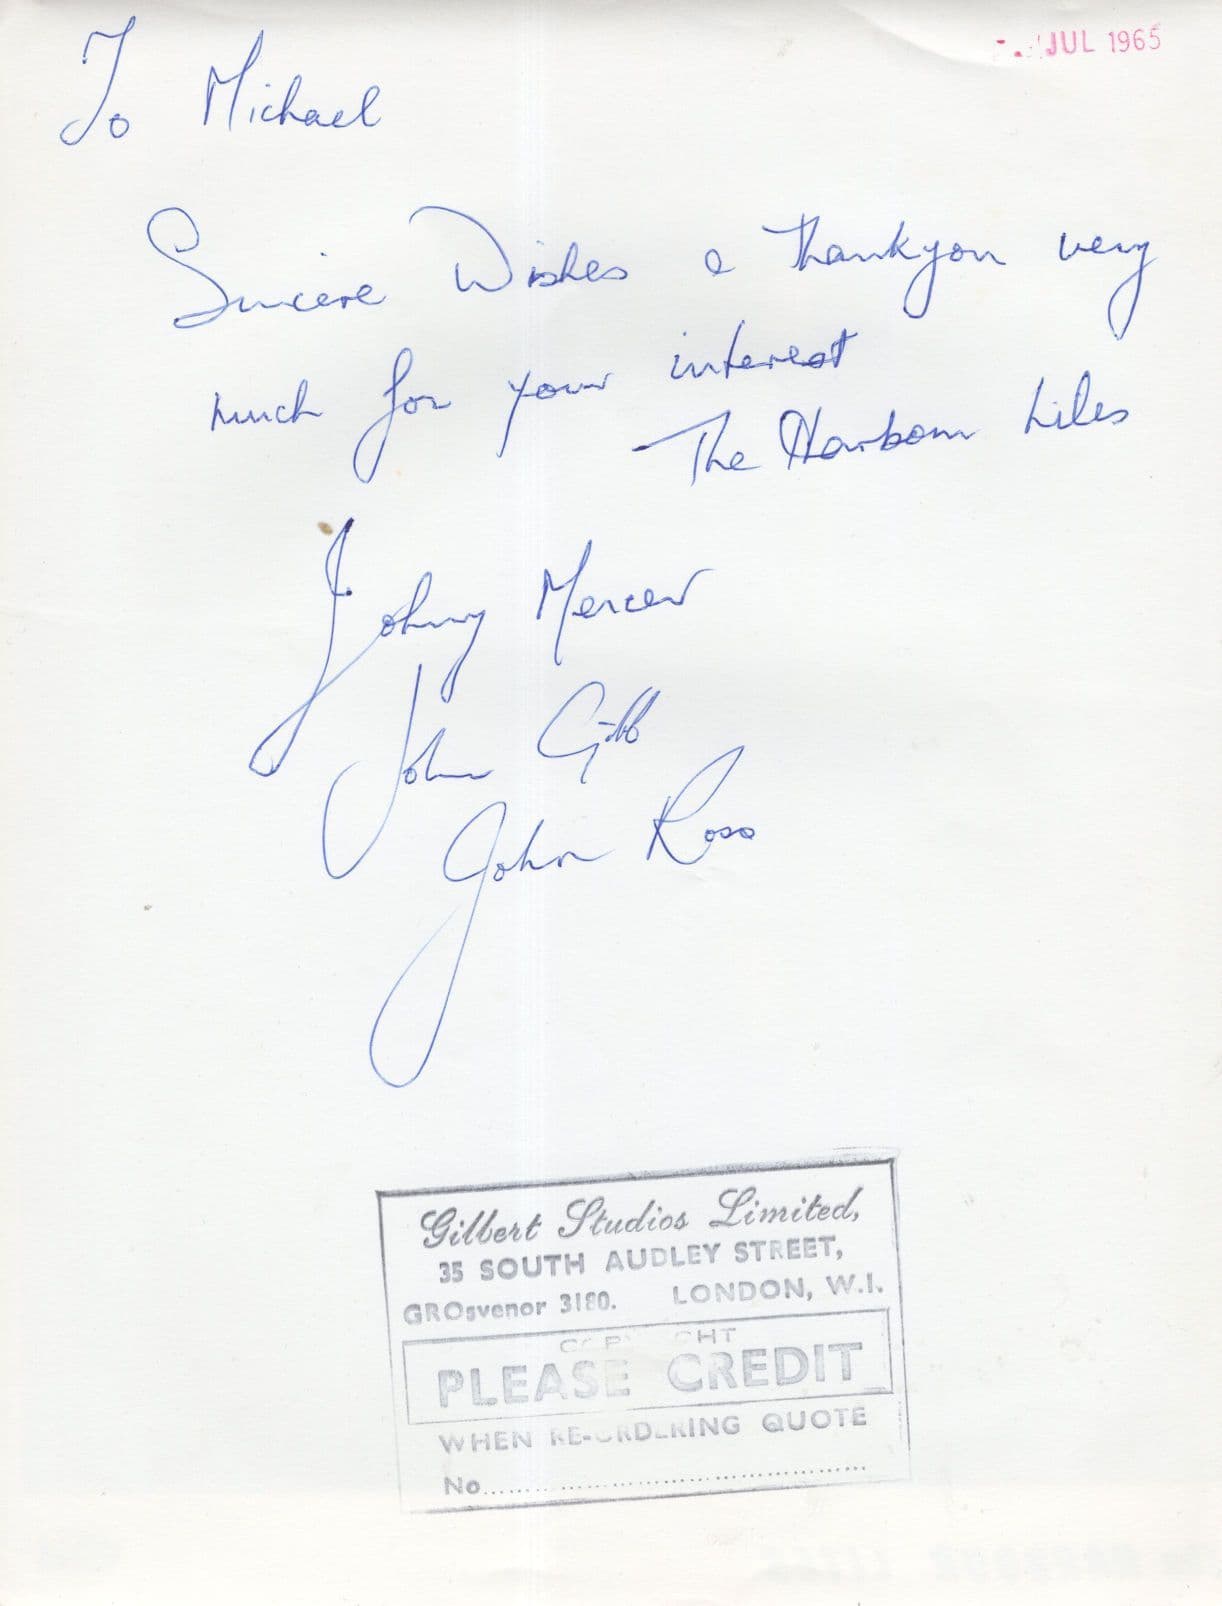 JUL 1965
To Michael
Sincere Wishes & Thankyou very
much for your interest
The Harbour Lites
Johnny Mercer
John Gibb
John Ross
Gilbert Studios Limited,
35 SOUTH AUDLEY STREET,
GROsvenor 3180. LONDON, W.1.
COPYRIGHT
PLEASE CREDIT
WHEN RE-ORDERING QUOTE
No...............................................